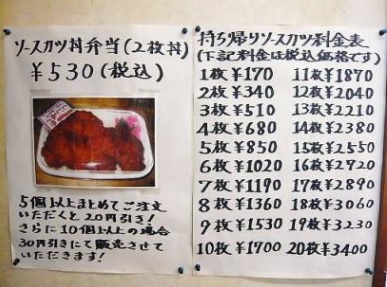 ソースカツ丼弁当(2枚丼)
￥530(税込)
5個以上まとめてご注文
いただくと20円引き!
さらに10個以上の場合
30円引きにて販売させて
いただきます!
持ち帰りソースカツ料金表
(下記料金は税込価格です)
1枚￥170 11枚￥1870
2枚￥340 12枚￥2040
3枚￥510 13枚￥2210
4枚￥680 14枚￥2380
5枚￥850 15枚￥2550
6枚￥1020 16枚￥2720
7枚￥1190 17枚￥2890
8枚￥1360 18枚￥3060
9枚￥1530 19枚￥3230
10枚￥1700 20枚￥3400